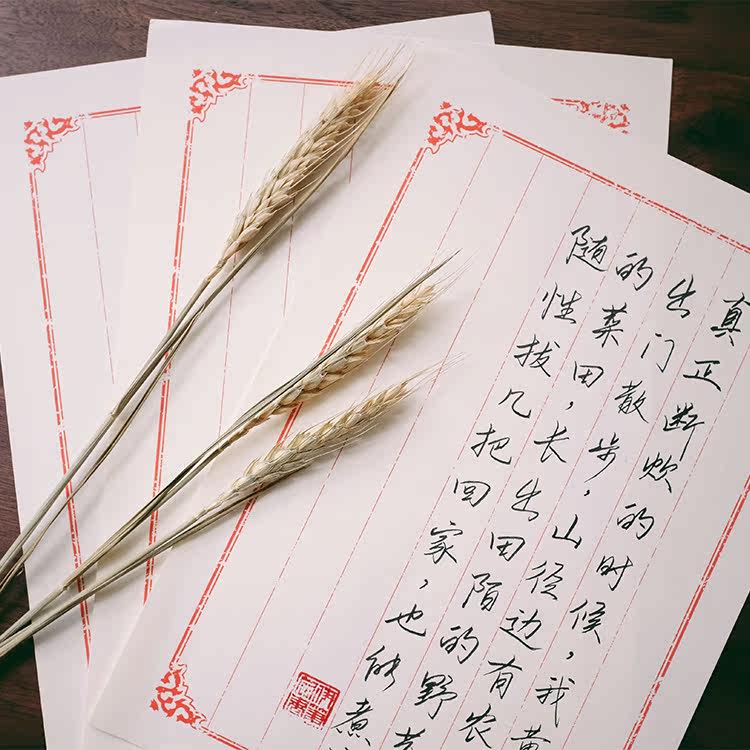 真正断炊的时候，我黄
出门散步，山径边有农
的菜田，长出田陌的野
随性拔几把回家，也能煮